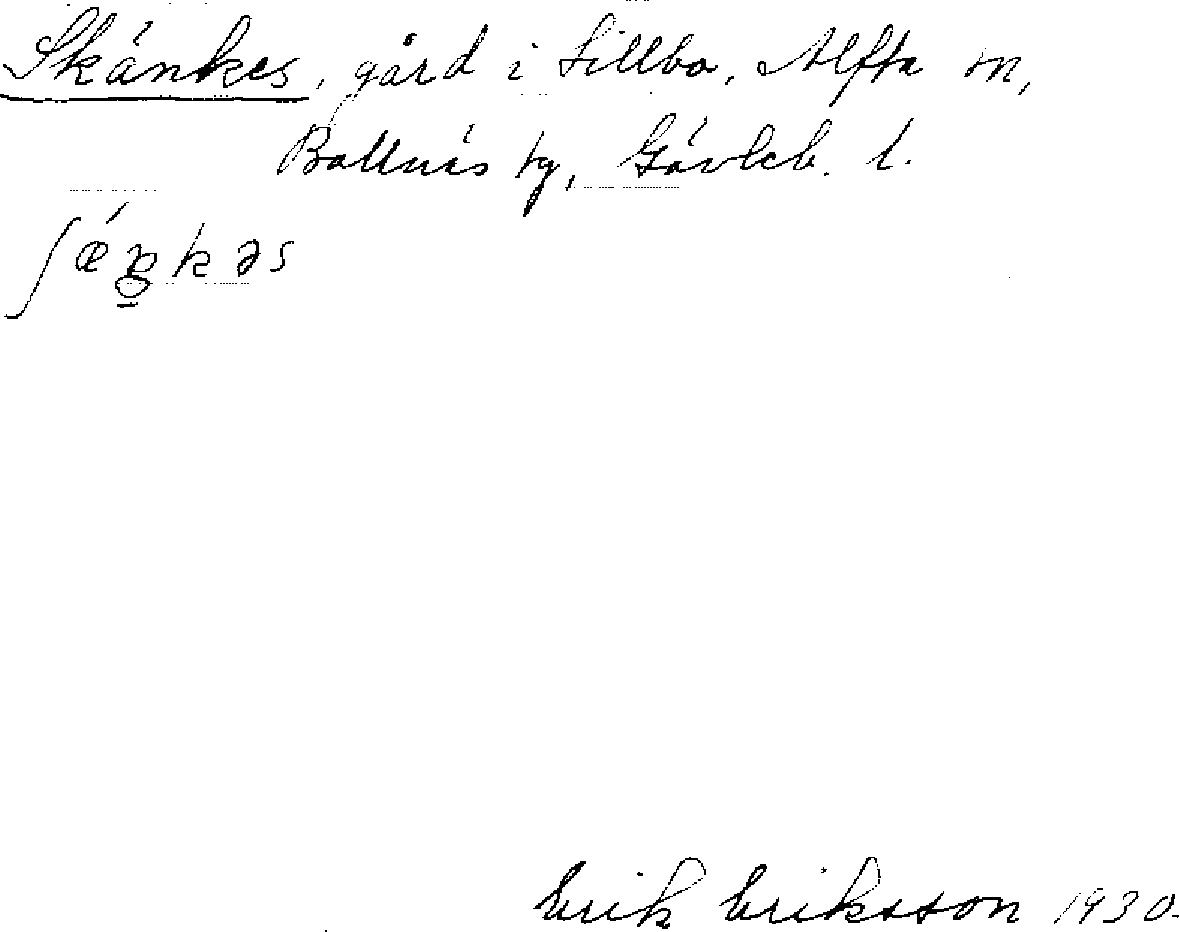 Skänkes, gård i Sillbo, Alfta sn,
Bollnäs tg, Gävleb. l.
Erik Eriksson 1930.